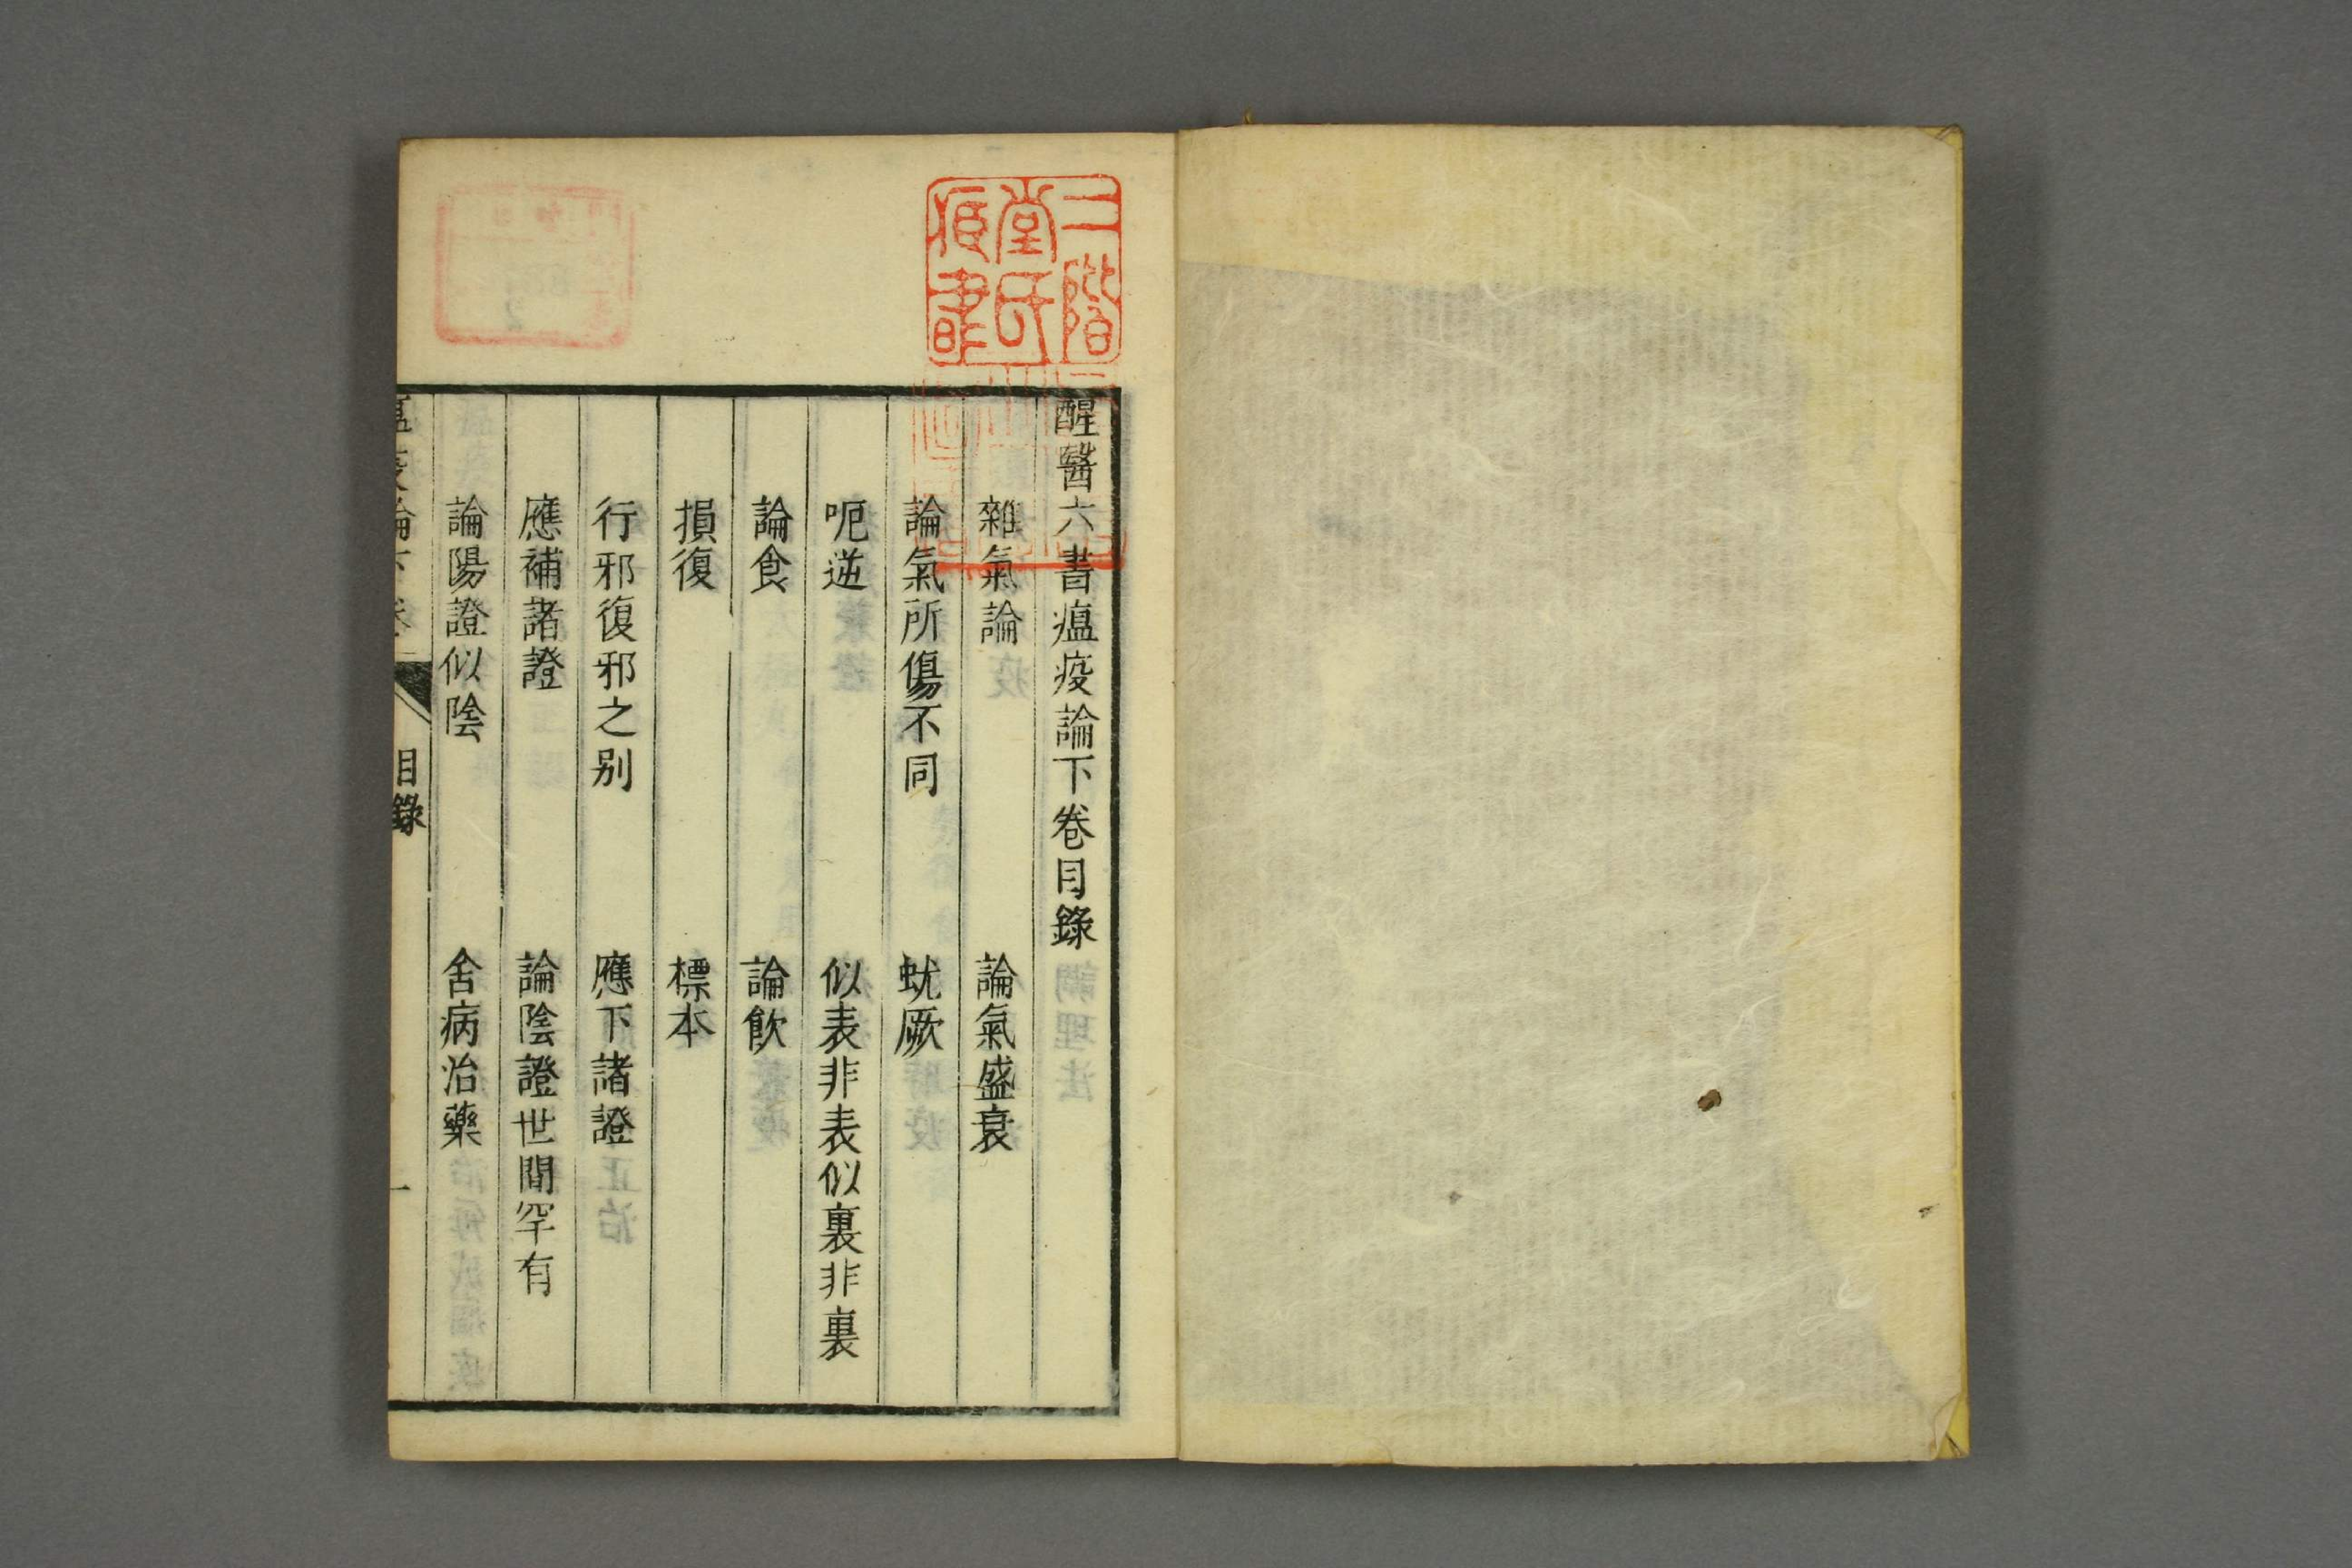 醒醫六書瘟疫論下卷目錄
雜氣論　論氣盛衰
論氣所傷不同　蚘厥
呃逆　似表非表似裏非裏
論食　論飲
損復　標本
行邪復邪之别　應下諸證
應補諸證　論陰證世間罕有
論陽證似陰　舍病治藥
瘟疫論下卷　目錄　一